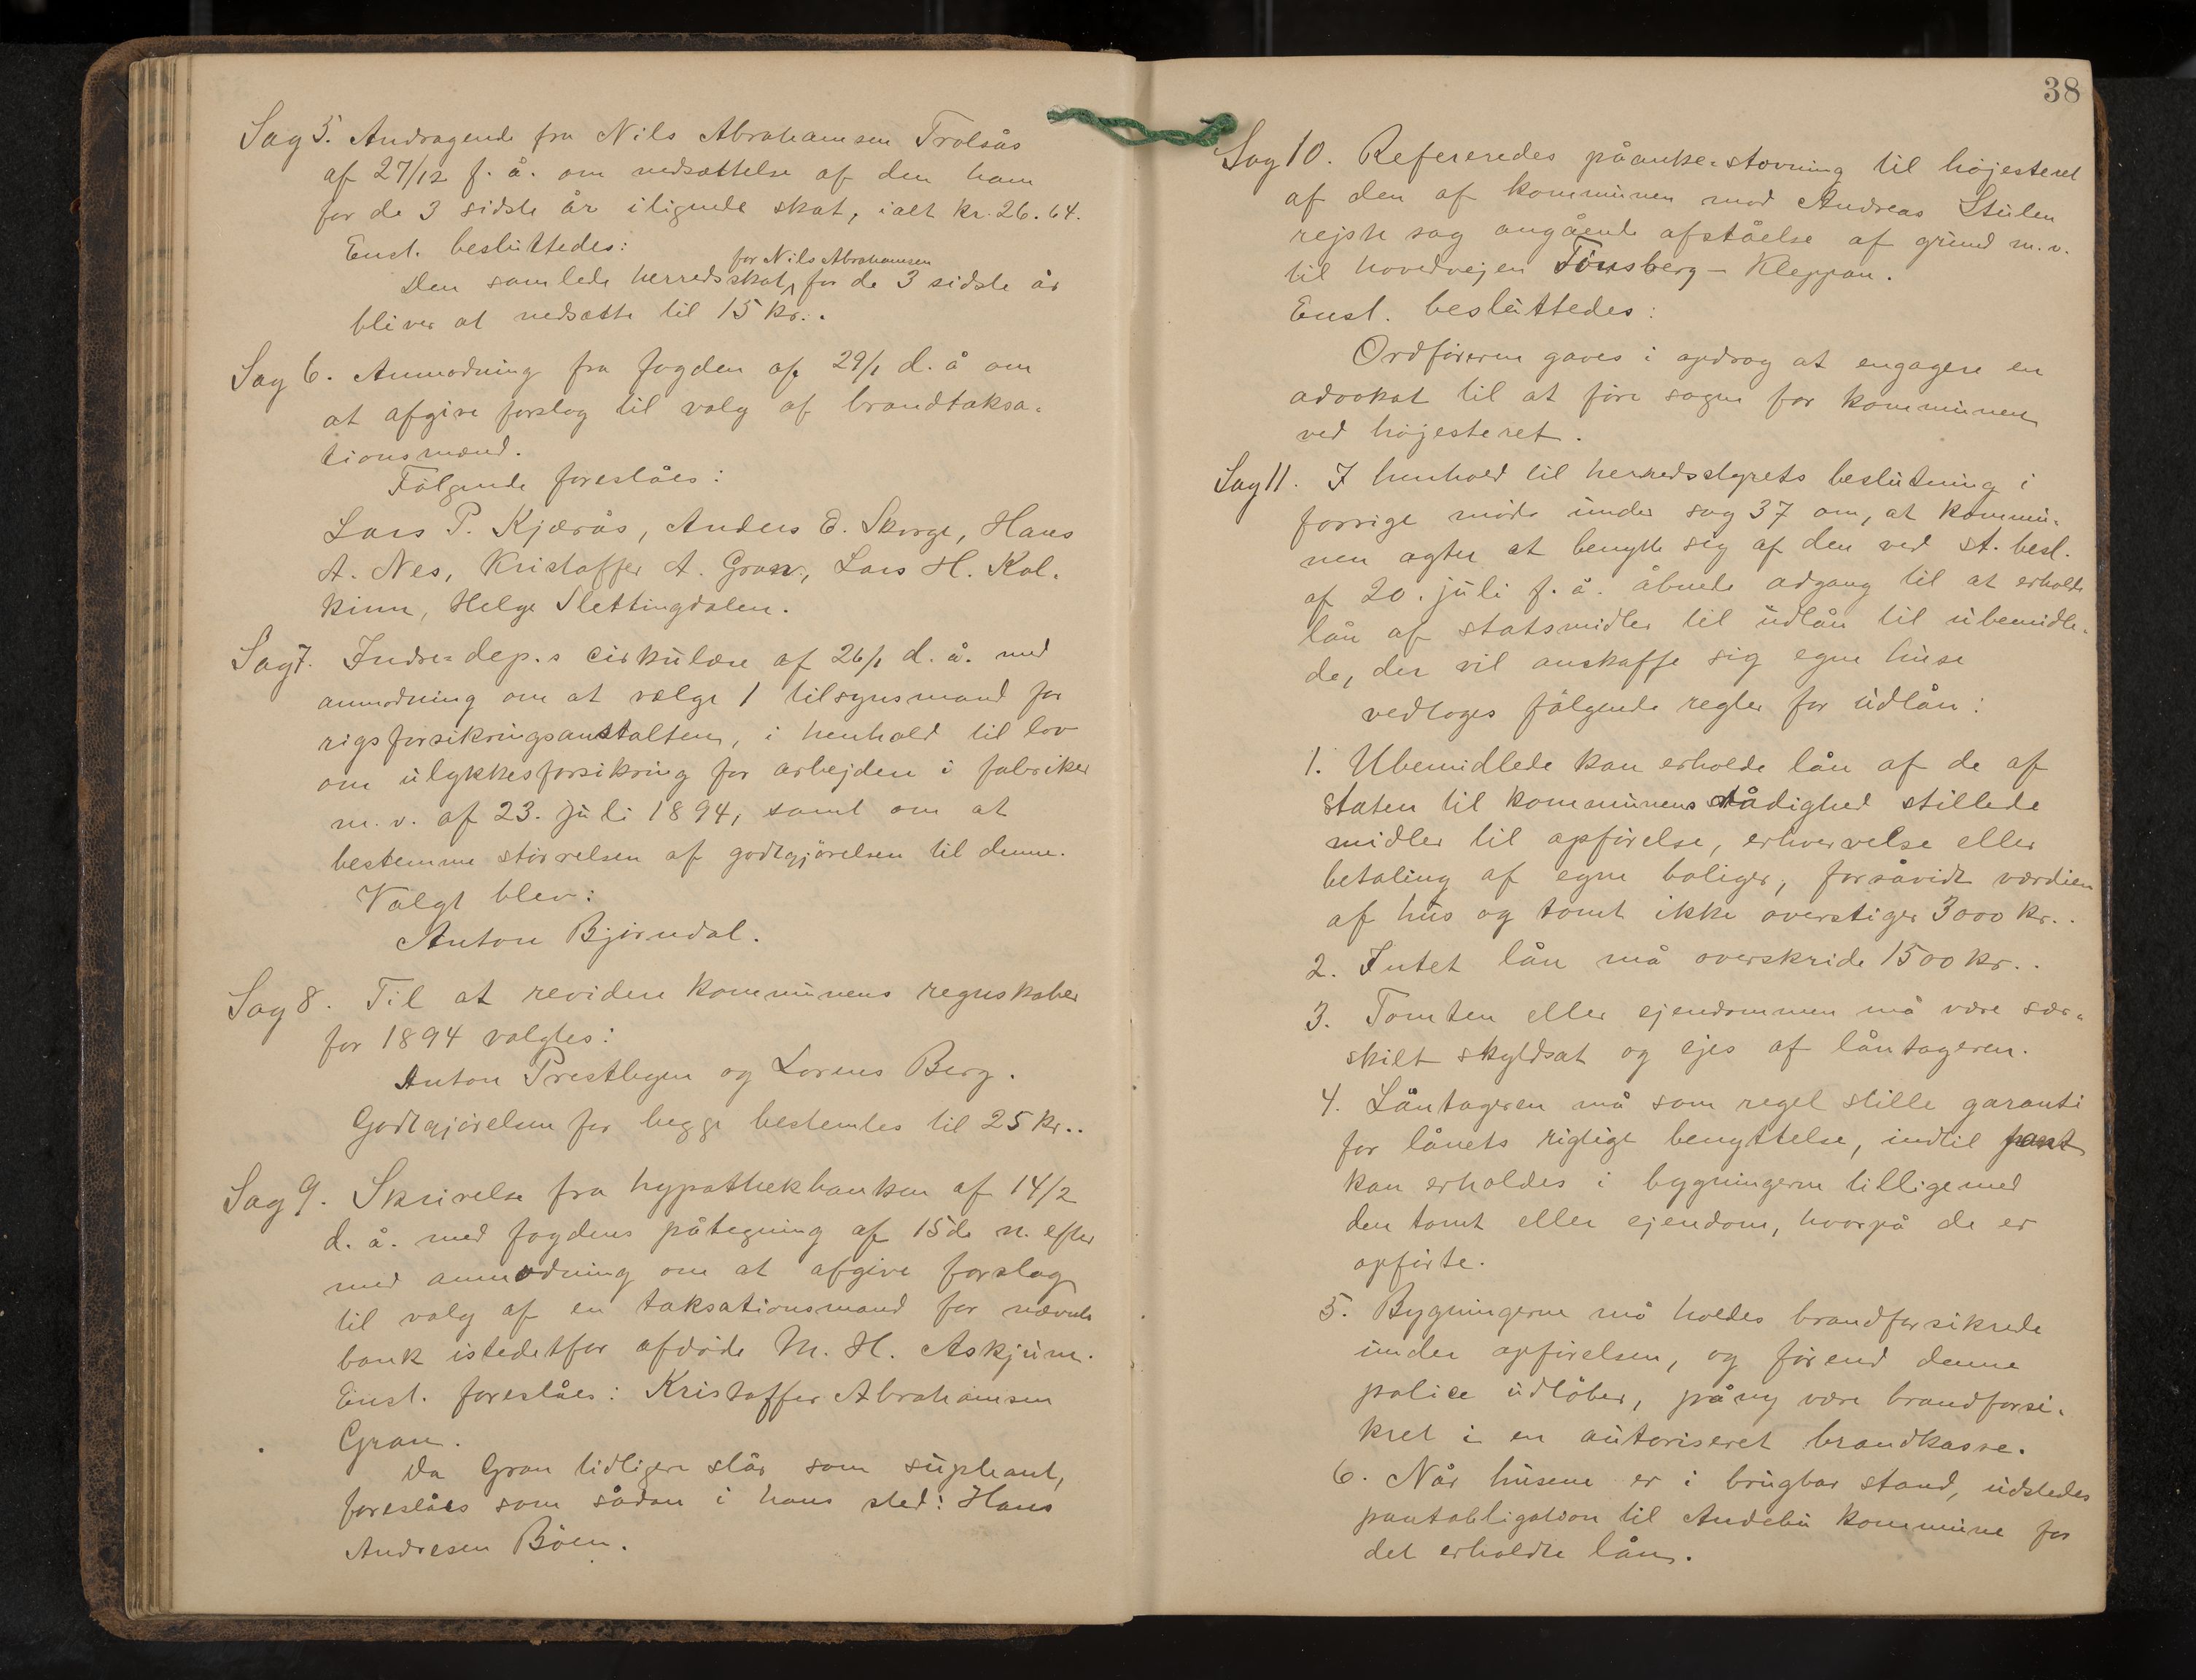 Sag 5. Andragende fra Nils Abrahamsen Trolsås
af 27/12 f. å. om nedsættelse af den ham
for de 3 sidste år ilignede skat, ialt kr. 26.64.
Enst. besluttedes:
for Nils Abrahamsen
Den samlede herredsskat for de 3 sidste år
bliver at nedsætte til 15 kr..
Sag 6. Anmodning fra fogden af 29/1 d. å om
at afgive forslag til valg af brandtaksa-
tionsmænd.
Følgende foreslåes:
Lars P. Kjærås, Anders E. Skorge, Hans
A. Nes, Kristoffer A. Gran, Lars H. Kol-
kinn, Helge Slettingdalen.
Sag 7. Indre-dep.s cirkulære af 26/1 d. å. med
anmodning om at vælge 1 tilsynsmand for
rigsforsikringsanstalten, i henhold til lov
om ulykkesforsikring for arbejdere i fabriker
m. v. af 23. juli 1894, samt om at
bestemme størrelsen af godtgjørelsen til denne.
Valgt blev:
Anton Bjørndal.
Sag 8. Til at revidere kommunens regnskaber
for 1894 valgtes:
Anton Prestbyen og Lorens Berg.
Godtgjørelsen for begge bestemtes til 25 kr..
Sag 9. Skrivelse fra hypothekbanken af 14/2
d. å. med fogdens påtegning af 15de n. efter
med anmodning om at afgive forslag
til valg af en taksationsmand for nævnte
bank istedetfor afdøde M. H. Askjum.
Enst. foreslåes: Kristoffer Abrahamsen
Gran.
Da Gran tidligere står som supleant,
foreslåes som sådan i hans sted: Hans
Andresen Böen.
38
Sag 10. Refereredes påanke-stævning til højesteret
af den af kommunen mod Andreas Stulen
rejste sag angående afståelse af grund m. v.
til hovedvejen Tønsberg - Kleppan.
Enst. besluttedes:
Ordføreren gaves i opdrag at engagere en
advokat til at føre sagen for kommunen
ved højesteret.
Sag 11. I henhold til herredsstyrets beslutning i
forrige møde under sag 37 om, at kommu-
nen agter at benytte sig af den ved st. besl.
af 20. juli f. å. åbnede adgang til at erholde
lån af statsmidler til udlån til ubemidle-
de, der vil anskaffe sig egne huse
vedtoges følgende regler for udlån:
1. Ubemidlede kan erholde lån af de af
staten til kommunens rådighed stillede
midler til opførelse, erhvervelse eller
betaling af egne boliger, forsåvidt værdien
af hus og tomt ikke overstiger 3000 kr..
2. Intet lån må overskride 1500 kr..
3. Tomten eller ejendommen må være sær-
skilt skyldsat og ejes af låntageren.
4. Låntageren må som regel stille garanti
for lånets rigtige benyttelse, indtil pant
kan erholdes i bygningerne tilligemed
den tomt eller ejendom, hvorpå de er
opførte.
5. Bygningerne må holdes brandforsikrede
under opførelsen, og førend denne
police udløber, påny være brandforsi-
kret i en autoriseret brandkasse.
6. Når husene er i brugbar stand, udstedes
pantobligation til Andebu kommune for
det erholdte lån.